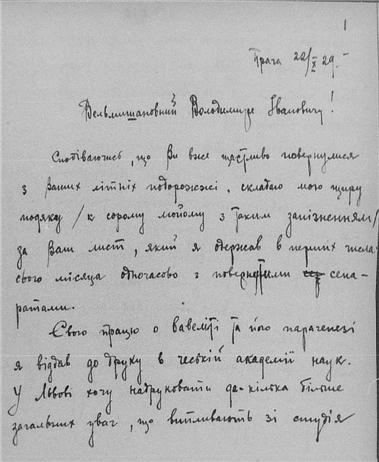 1
Прага 22/X 29.-
Вельмишановний Володимире Івановичу!
Сподіваючись, що Ви вже щасливо повернулися
з Ваших літніх подорожжі, складаю мою щиру
подяку /к сорому мойому з таким запізненням/
за Ваш лист, який я одержав в перших числа
свого місяца одночасово з повернутими сепа-
ратами.
Свою працю о вавеліті та його парагенезі
я віддав до друку в чеській академії наук.
У Львові хочу надрукувати де-кілька більше
загальних уваг, що випливають зі студія